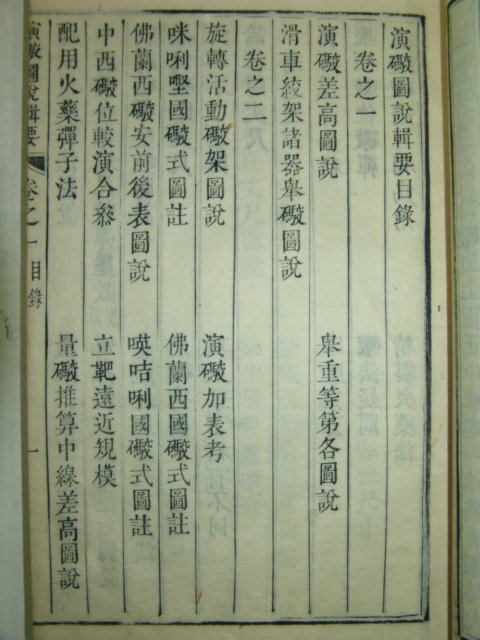 演礮圖說輯要目錄
卷之一
演礮差高圖說 舉重等第各圖說
滑車絞架諸器舉礮圖說
卷之二
旋轉活動礮架圖說 演礮加表考
咪唎㗂國礮式圖註 佛蘭西國礮式圖註
佛蘭西礮安前後表圖說 𠸄咭唎國礮式圖註
中西礮位較演合叅 立靶遠近規模
配用火藥彈子法 量礮推算中線差高圖說
演礮圖說輯要 卷之一 目錄 一